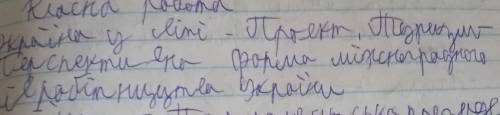 класна робота
країна у світі - Проект,
Перспективна форма міжнародного
івробітництва України